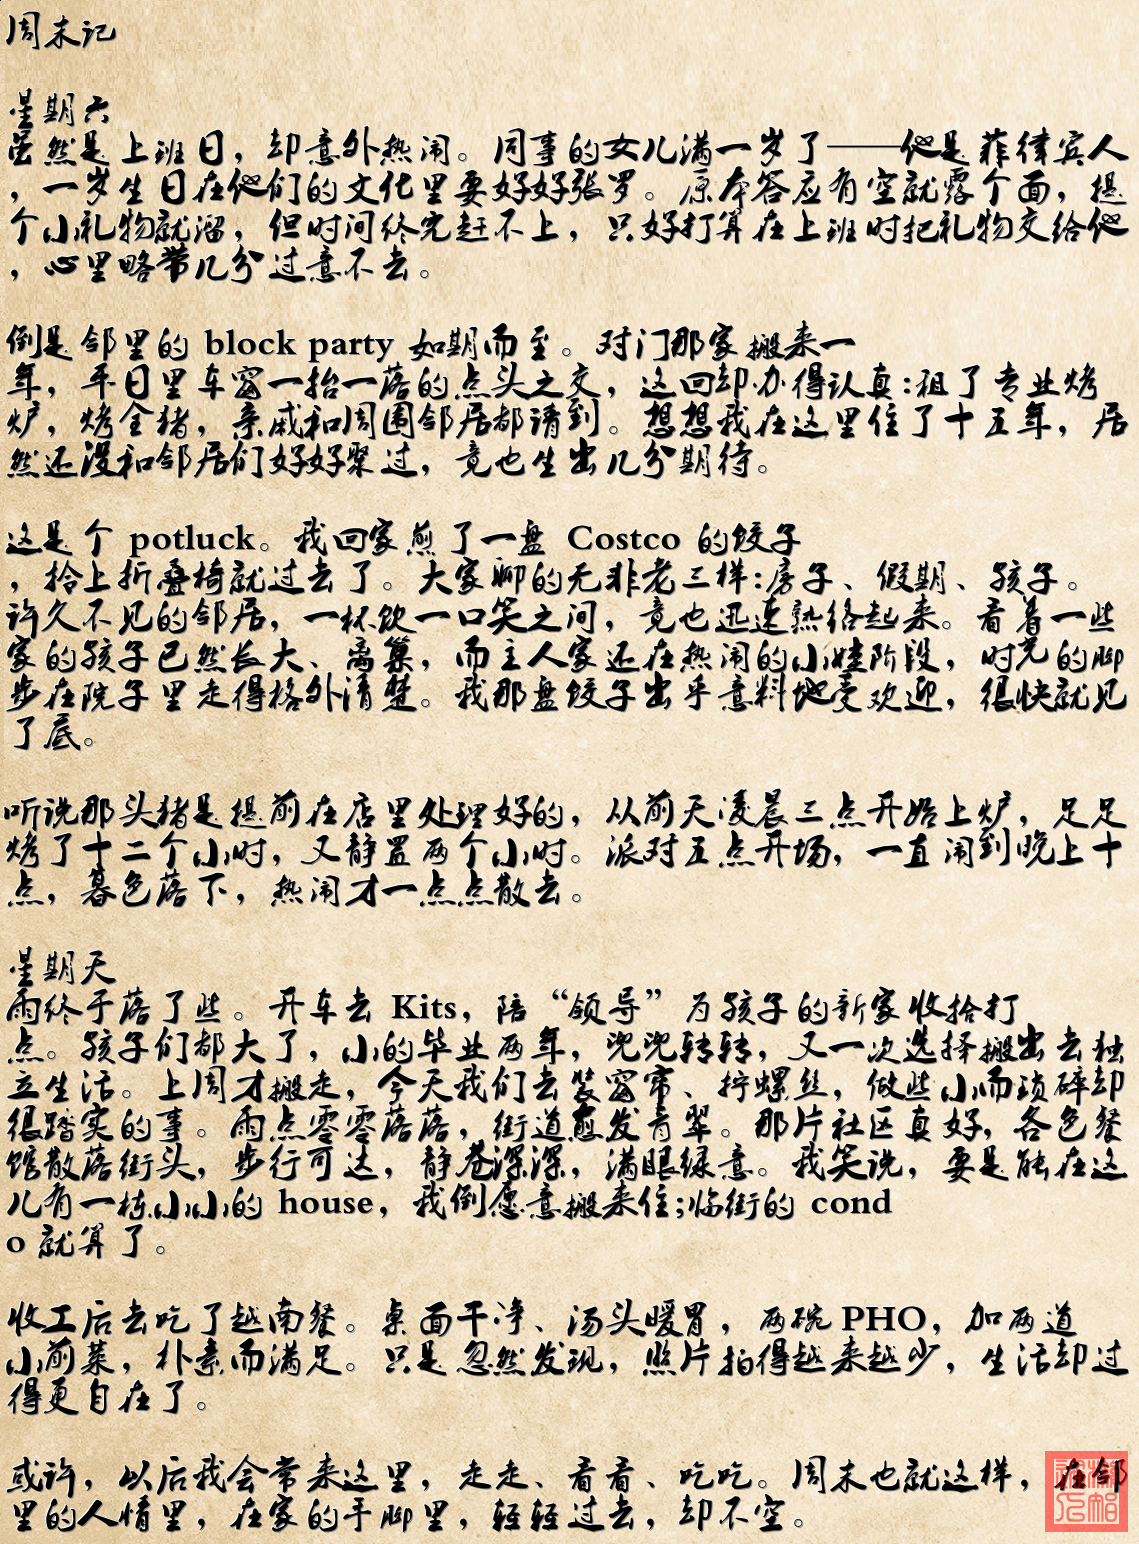 周末记
星期六
虽然是上班日，却意外热闹。同事的女儿满一岁了——他是菲律宾人
，一岁生日在他们的文化里要好好張罗。原本答应有空就露个面，提
个小礼物就溜，但时间终究赶不上，只好打算在上班时把礼物交给他
，心里略带几分过意不去。
倒是邻里的 block party 如期而至。对门那家搬来一
年，平日里车窗一抬一落的点头之交，这回却办得认真：租了专业烤
炉，烤全猪，亲戚和周围邻居都请到。想想我在这里住了十五年，居
然还没和邻居们好好聚过，竟也生出几分期待。
这是个 potluck。我回家煎了一盘 Costco 的饺子
，拎上折叠椅就过去了。大家聊的无非老三样：房子、假期、孩子。
许久不见的邻居，一杯饮一口笑之间，竟也迅速熟络起来。看着一些
家的孩子已然长大、离巢，而主人家还在热闹的小娃阶段，时光的脚
步在院子里走得格外清楚。我那盘饺子出乎意料地受欢迎，很快就见
了底。
听说那头猪是提前在店里处理好的，从前天凌晨三点开始上炉，足足
烤了十二个小时，又静置两个小时。派对五点开场，一直闹到晚上十
点，暮色落下，热闹才一点点散去。
星期天
雨终于落了些。开车去 Kits，陪“领导”为孩子的新家收拾打
点。孩子们都大了，小的毕业两年，兜兜转转，又一次选择搬出去独
立生活。上周才搬走，今天我们去装窗帘、拧螺丝，做些小而琐碎却
很踏实的事。雨点零零落落，街道愈发青翠。那片社区真好，各色餐
馆散落街头，步行可达，静巷深深，满眼绿意。我笑说，要是能在这
儿有一栋小小的 house，我倒愿意搬来住；临街的 cond
o 就算了。
收工后去吃了越南餐。桌面干净、汤头暖胃，两碗 PHO，加两道
小前菜，朴素而满足。只是忽然发现，照片拍得越来越少，生活却过
得更自在了。
或许，以后我会常来这里，走走、看看、吃吃。周末也就这样，在邻
里的人情里，在家的手脚里，轻轻过去，却不空。